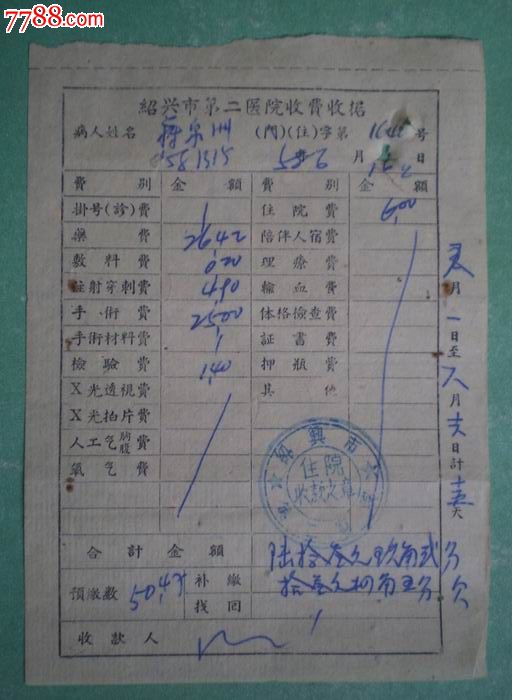 7788.com
紹兴市第二医院收費收据
病人姓名 (門)(住)字第 号
月 日
費別 金額 費別 金額
掛号(診)費 住院費 6.00
藥費 26.42 陪伴人宿費
敷料費 0.20 理療費
注射穿刺費 4.90 輸血費
手術費 25.00 体格檢查費
手術材料費 証書費
檢驗費 1.40 押瓶費
X光透視費 其他
X光拍片費
人工气胸腹費
氧气費
月一日至
八月
日計
天
紹興市
住院
收款之章
合計金額 陆拾叁元玖角貳分
預繳数 50.47 補繳 拾叁元肆角五分 欠
找回
收款人